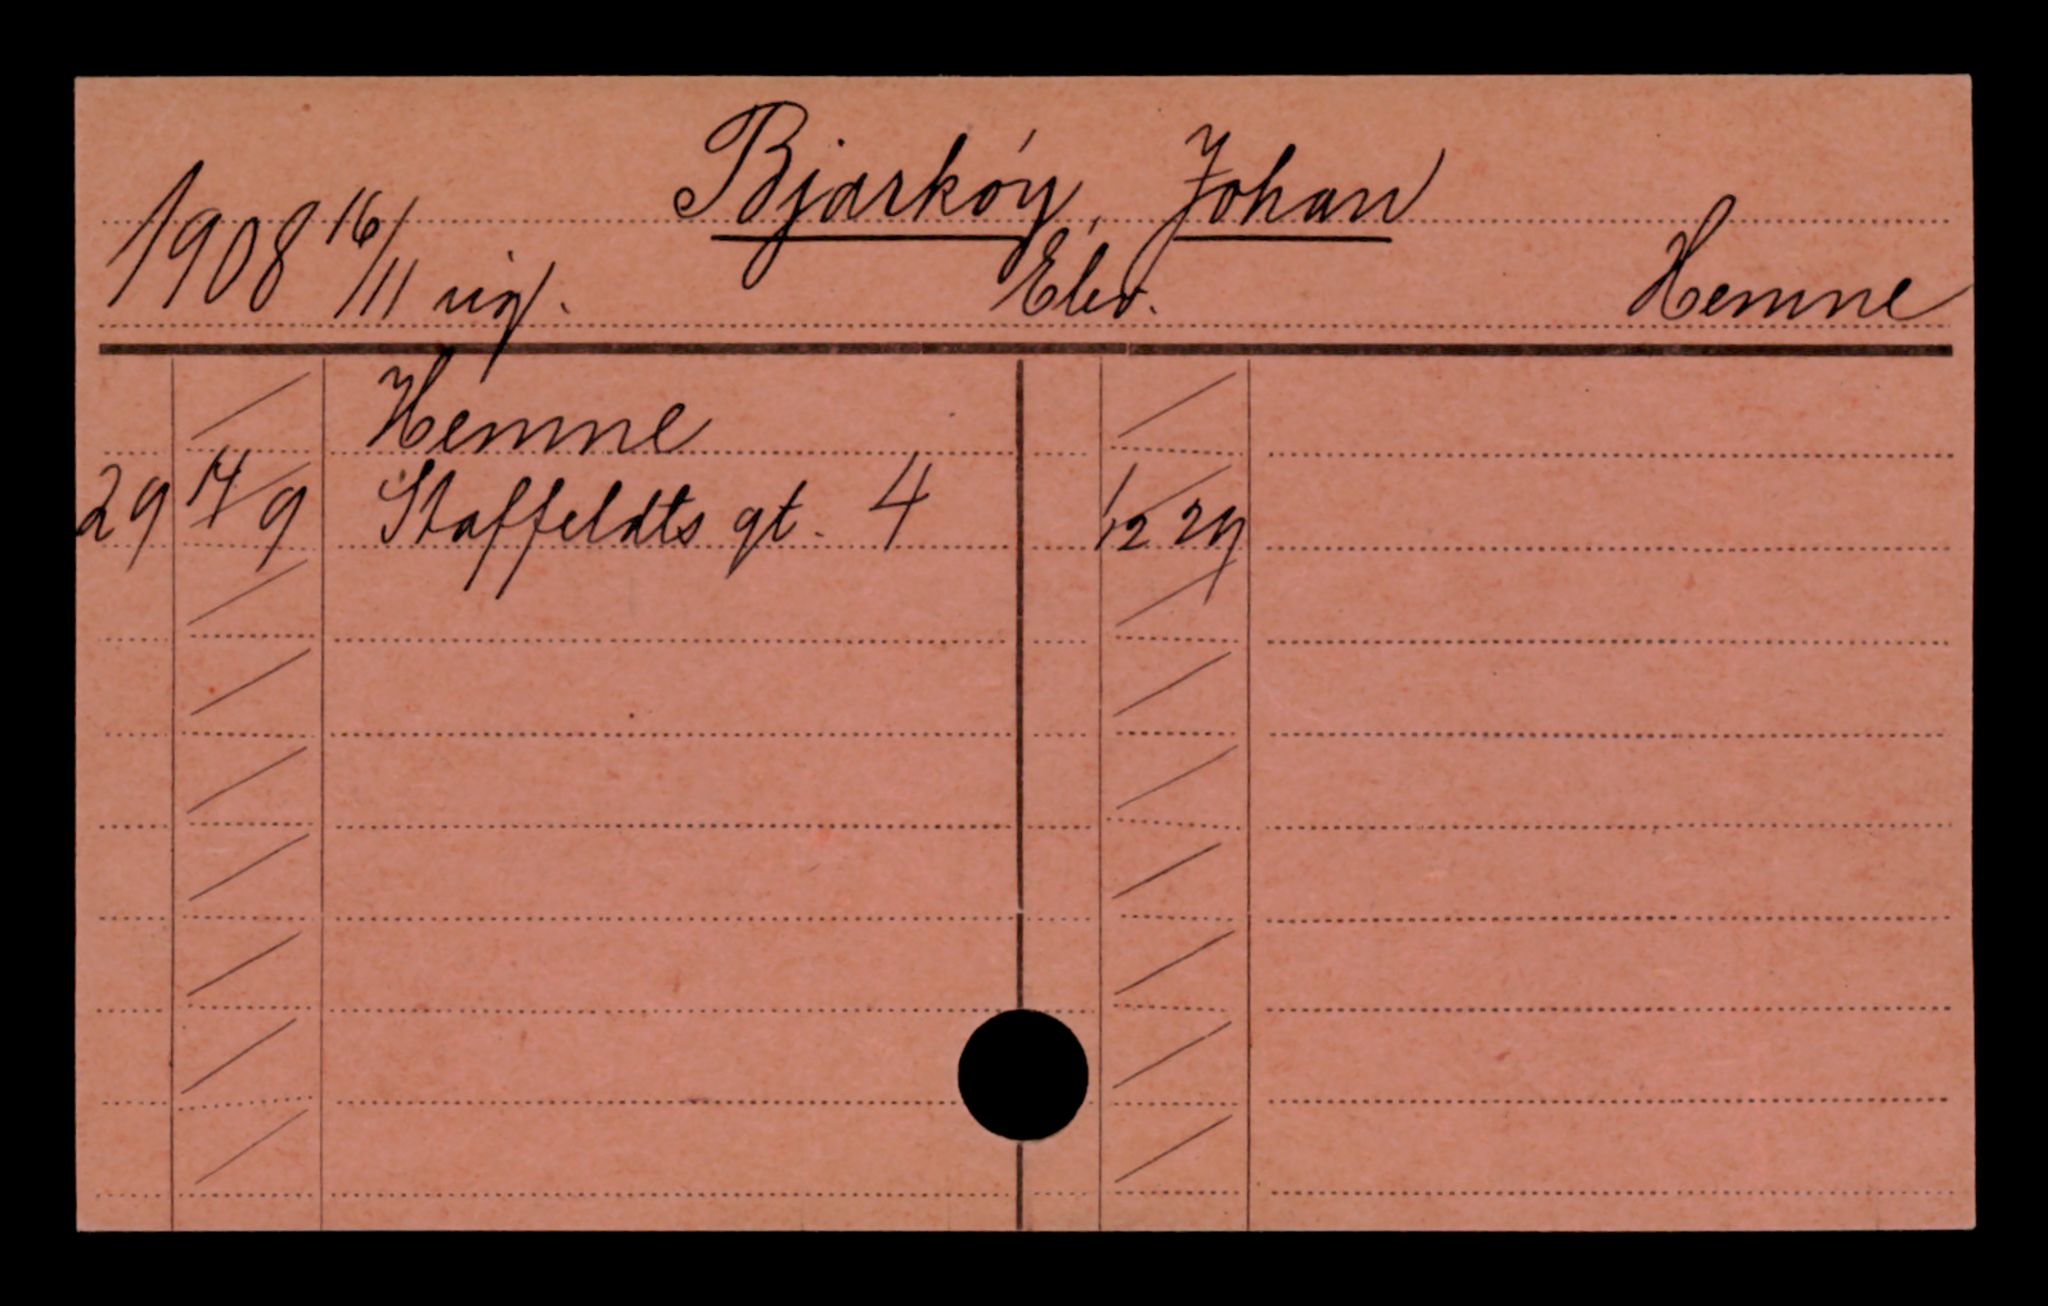 Bjarkóy, Johan
1908 16/11 ug. Elev. Hemne
Hemne
29 14/9 Staffeldts gt. 4 1/12 29